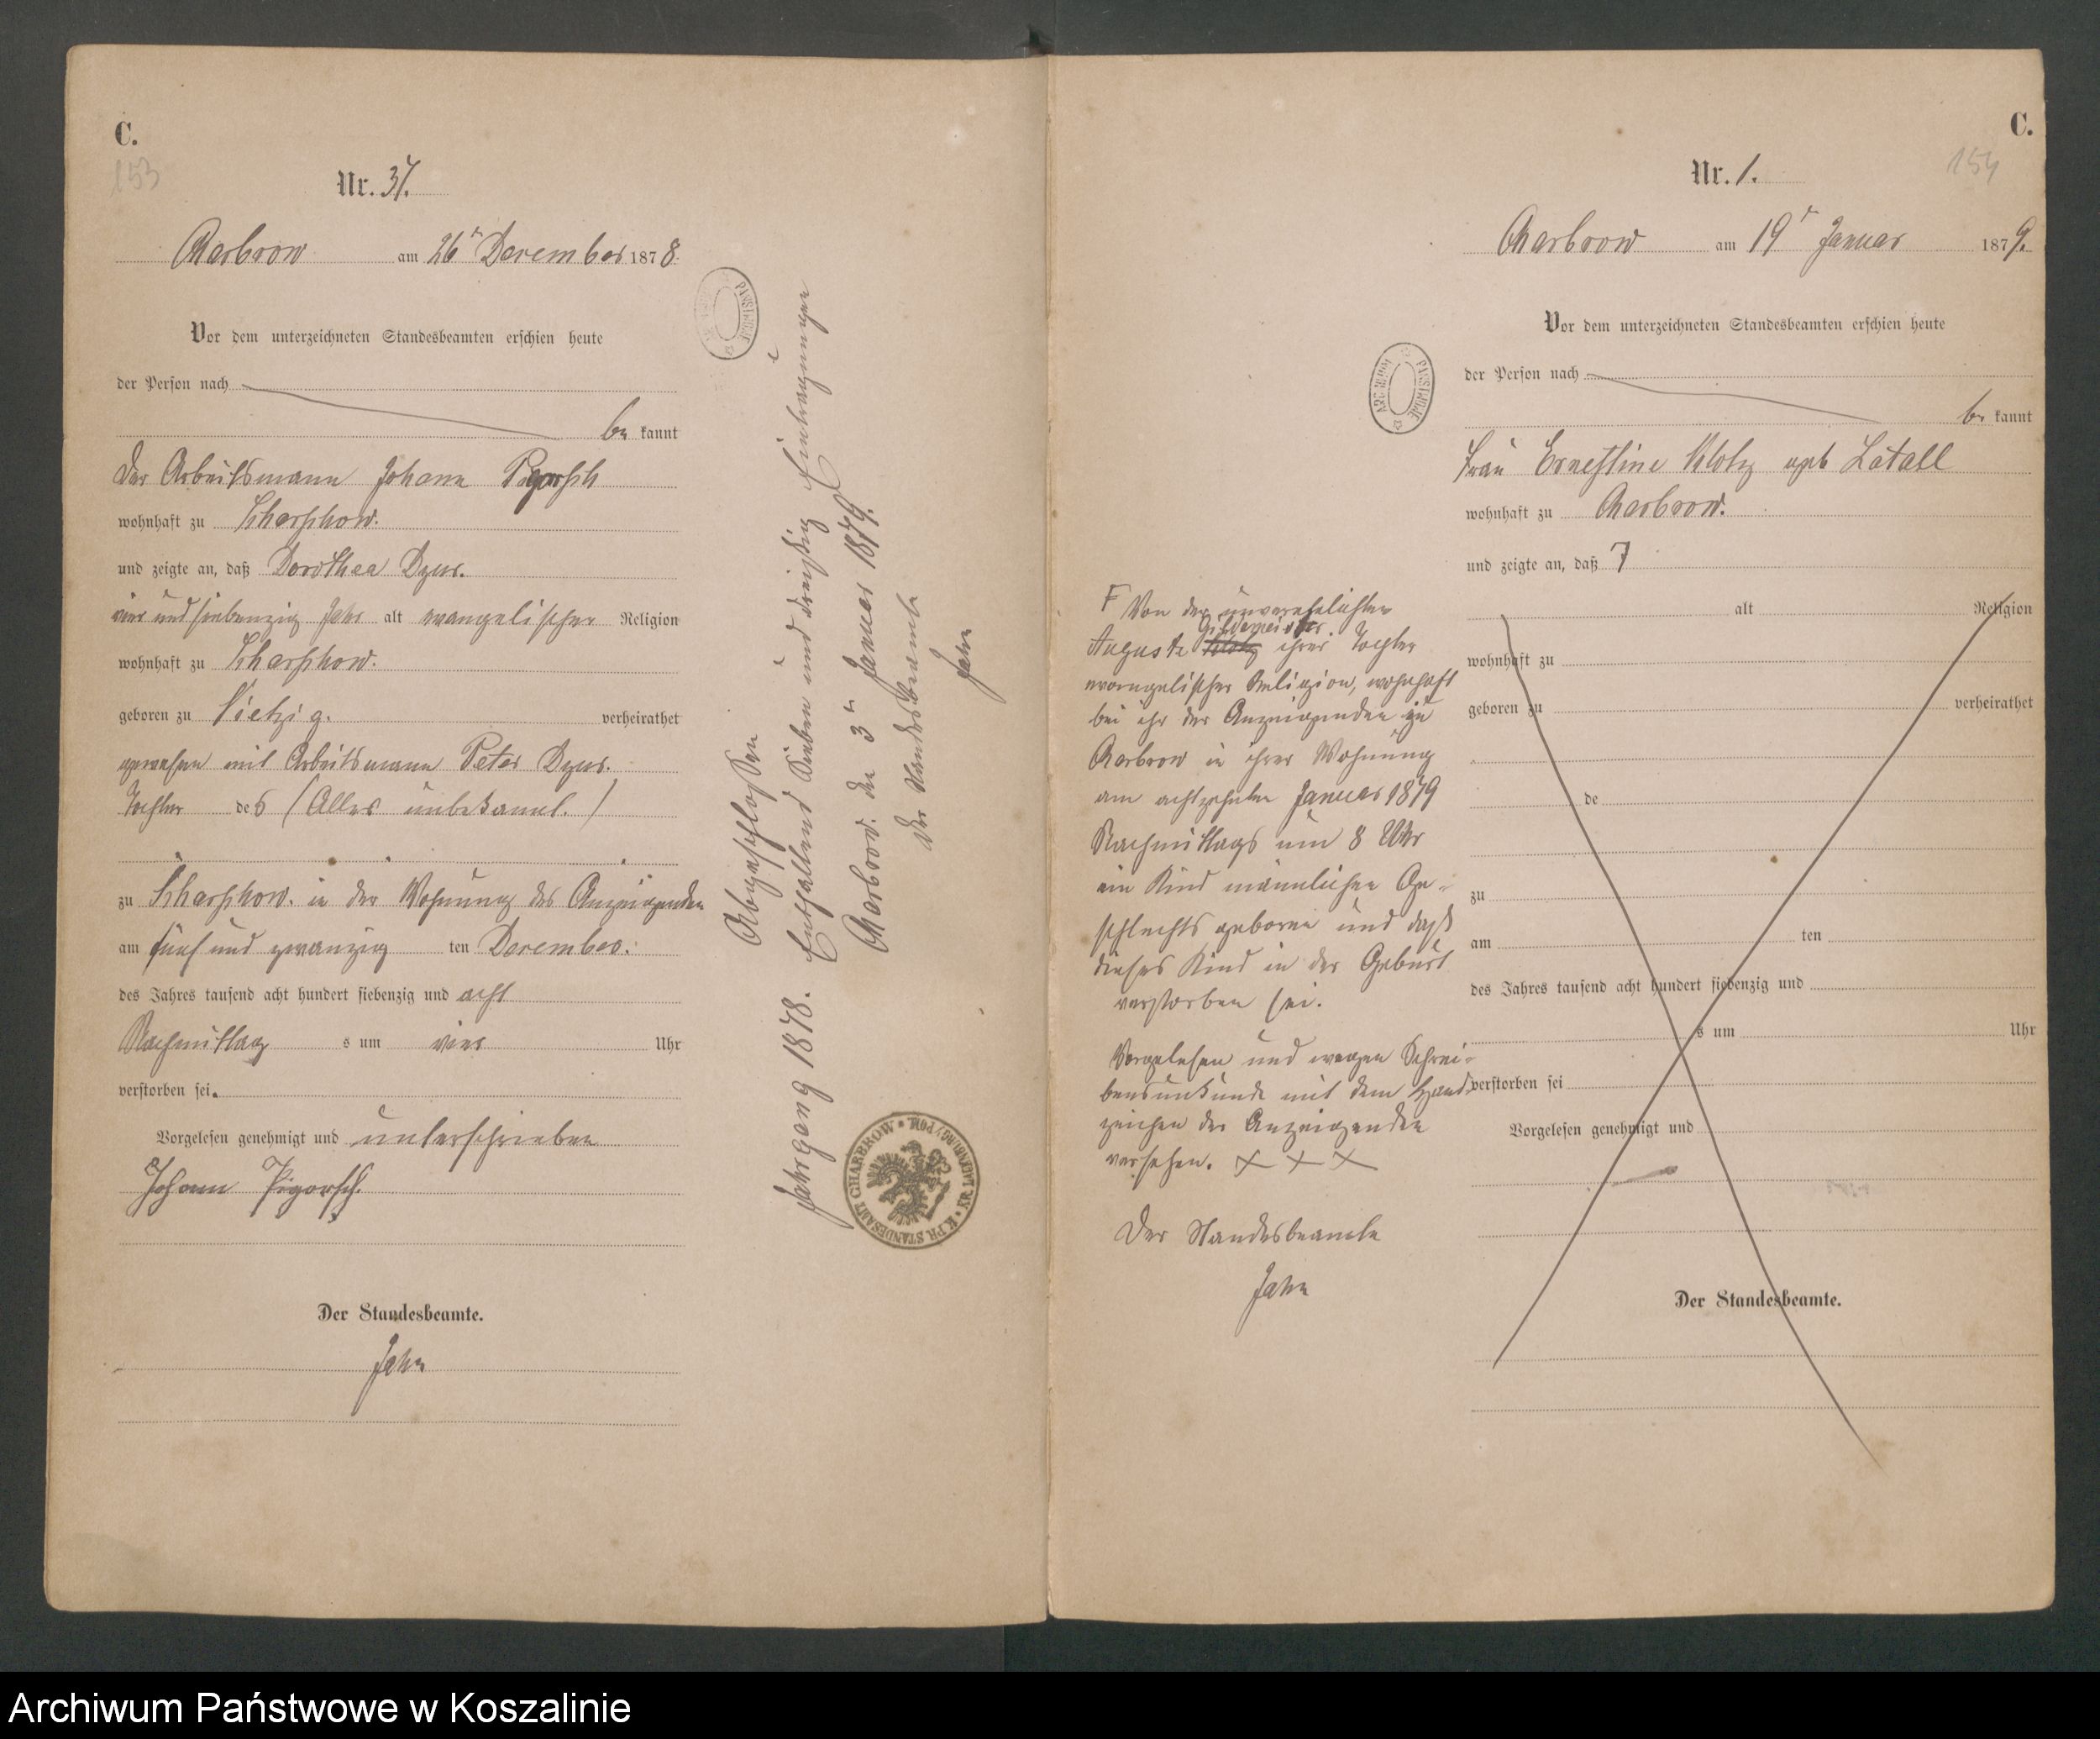 C.
153
Nr. 37.
Charbrow am 26ᵗ December 1878.
Vor dem unterzeichneten Standesbeamten erschien heute
der Person nach
be kannt
Der Arbeitsmann Johann Pigorsch
wohnhaft zu Scharschow.
und zeigte an, daß Dorothea Dzus.
vier und siebenzig Jahr alt evangelischer Religion
wohnhaft zu Scharschow.
geboren zu Vietzig. verheirathet
gewesen mit Arbeitsmann Peter Dzus.
Tochter des (Alles unbekannt.)
zu Scharschow. in der Wohnung des Anzeigenden
am fünf und zwanzig ten December.
des Jahres tausend acht hundert siebenzig und acht
Nachmittag s um vier Uhr
verstorben sei.
Vorgelesen genehmigt und unterschrieben
Johann Pigorsch.
Der Standesbeamte.
Jahn
Abgeschlossen
Jahrgang 1878. Enthaltend Sieben und dreißig Eintragungen
Charbrow. den 3ᵗ Januar 1879.
Der Standesbeamte
Jahn
K. PR. STANDESAMT CHARBROW • LAUENBURG / POM.
PAŃSTWOWE
C.
154
Nr. 1.
Charbrow am 19ᵗ Januar 1879.
Vor dem unterzeichneten Standesbeamten erschien heute
ARCHIWUM PAŃSTWOWE
der Person nach
be kannt
Frau Ernestine Klotz geb Latall
wohnhaft zu Charbrow.
und zeigte an, daß F
F Von der unverehelichten
Auguste Klotz ihrer Tochter
evangelischer Religion, wohnhaft
bei ihr der Anzeigenden zu
Charbrow in ihrer Wohnung
am achtzehnten Januar 1879
Nachmittags um 8 Uhr
ein Kind männlichen Ge-
schlechts geboren und daß
dieses Kind in der Geburt
verstorben sei.
Vorgelesen und wegen Schrei-
bensunkunde mit dem Hand-
zeichen der Anzeigenden
versehen. + + +
Der Standesbeamte
Jahn
alt Religion
wohnhaft zu
geboren zu verheirathet
de
zu
am ten
des Jahres tausend acht hundert siebenzig und
s um Uhr
verstorben sei
Vorgelesen genehmigt und
Der Standesbeamte.
Archiwum Państwowe w Koszalinie